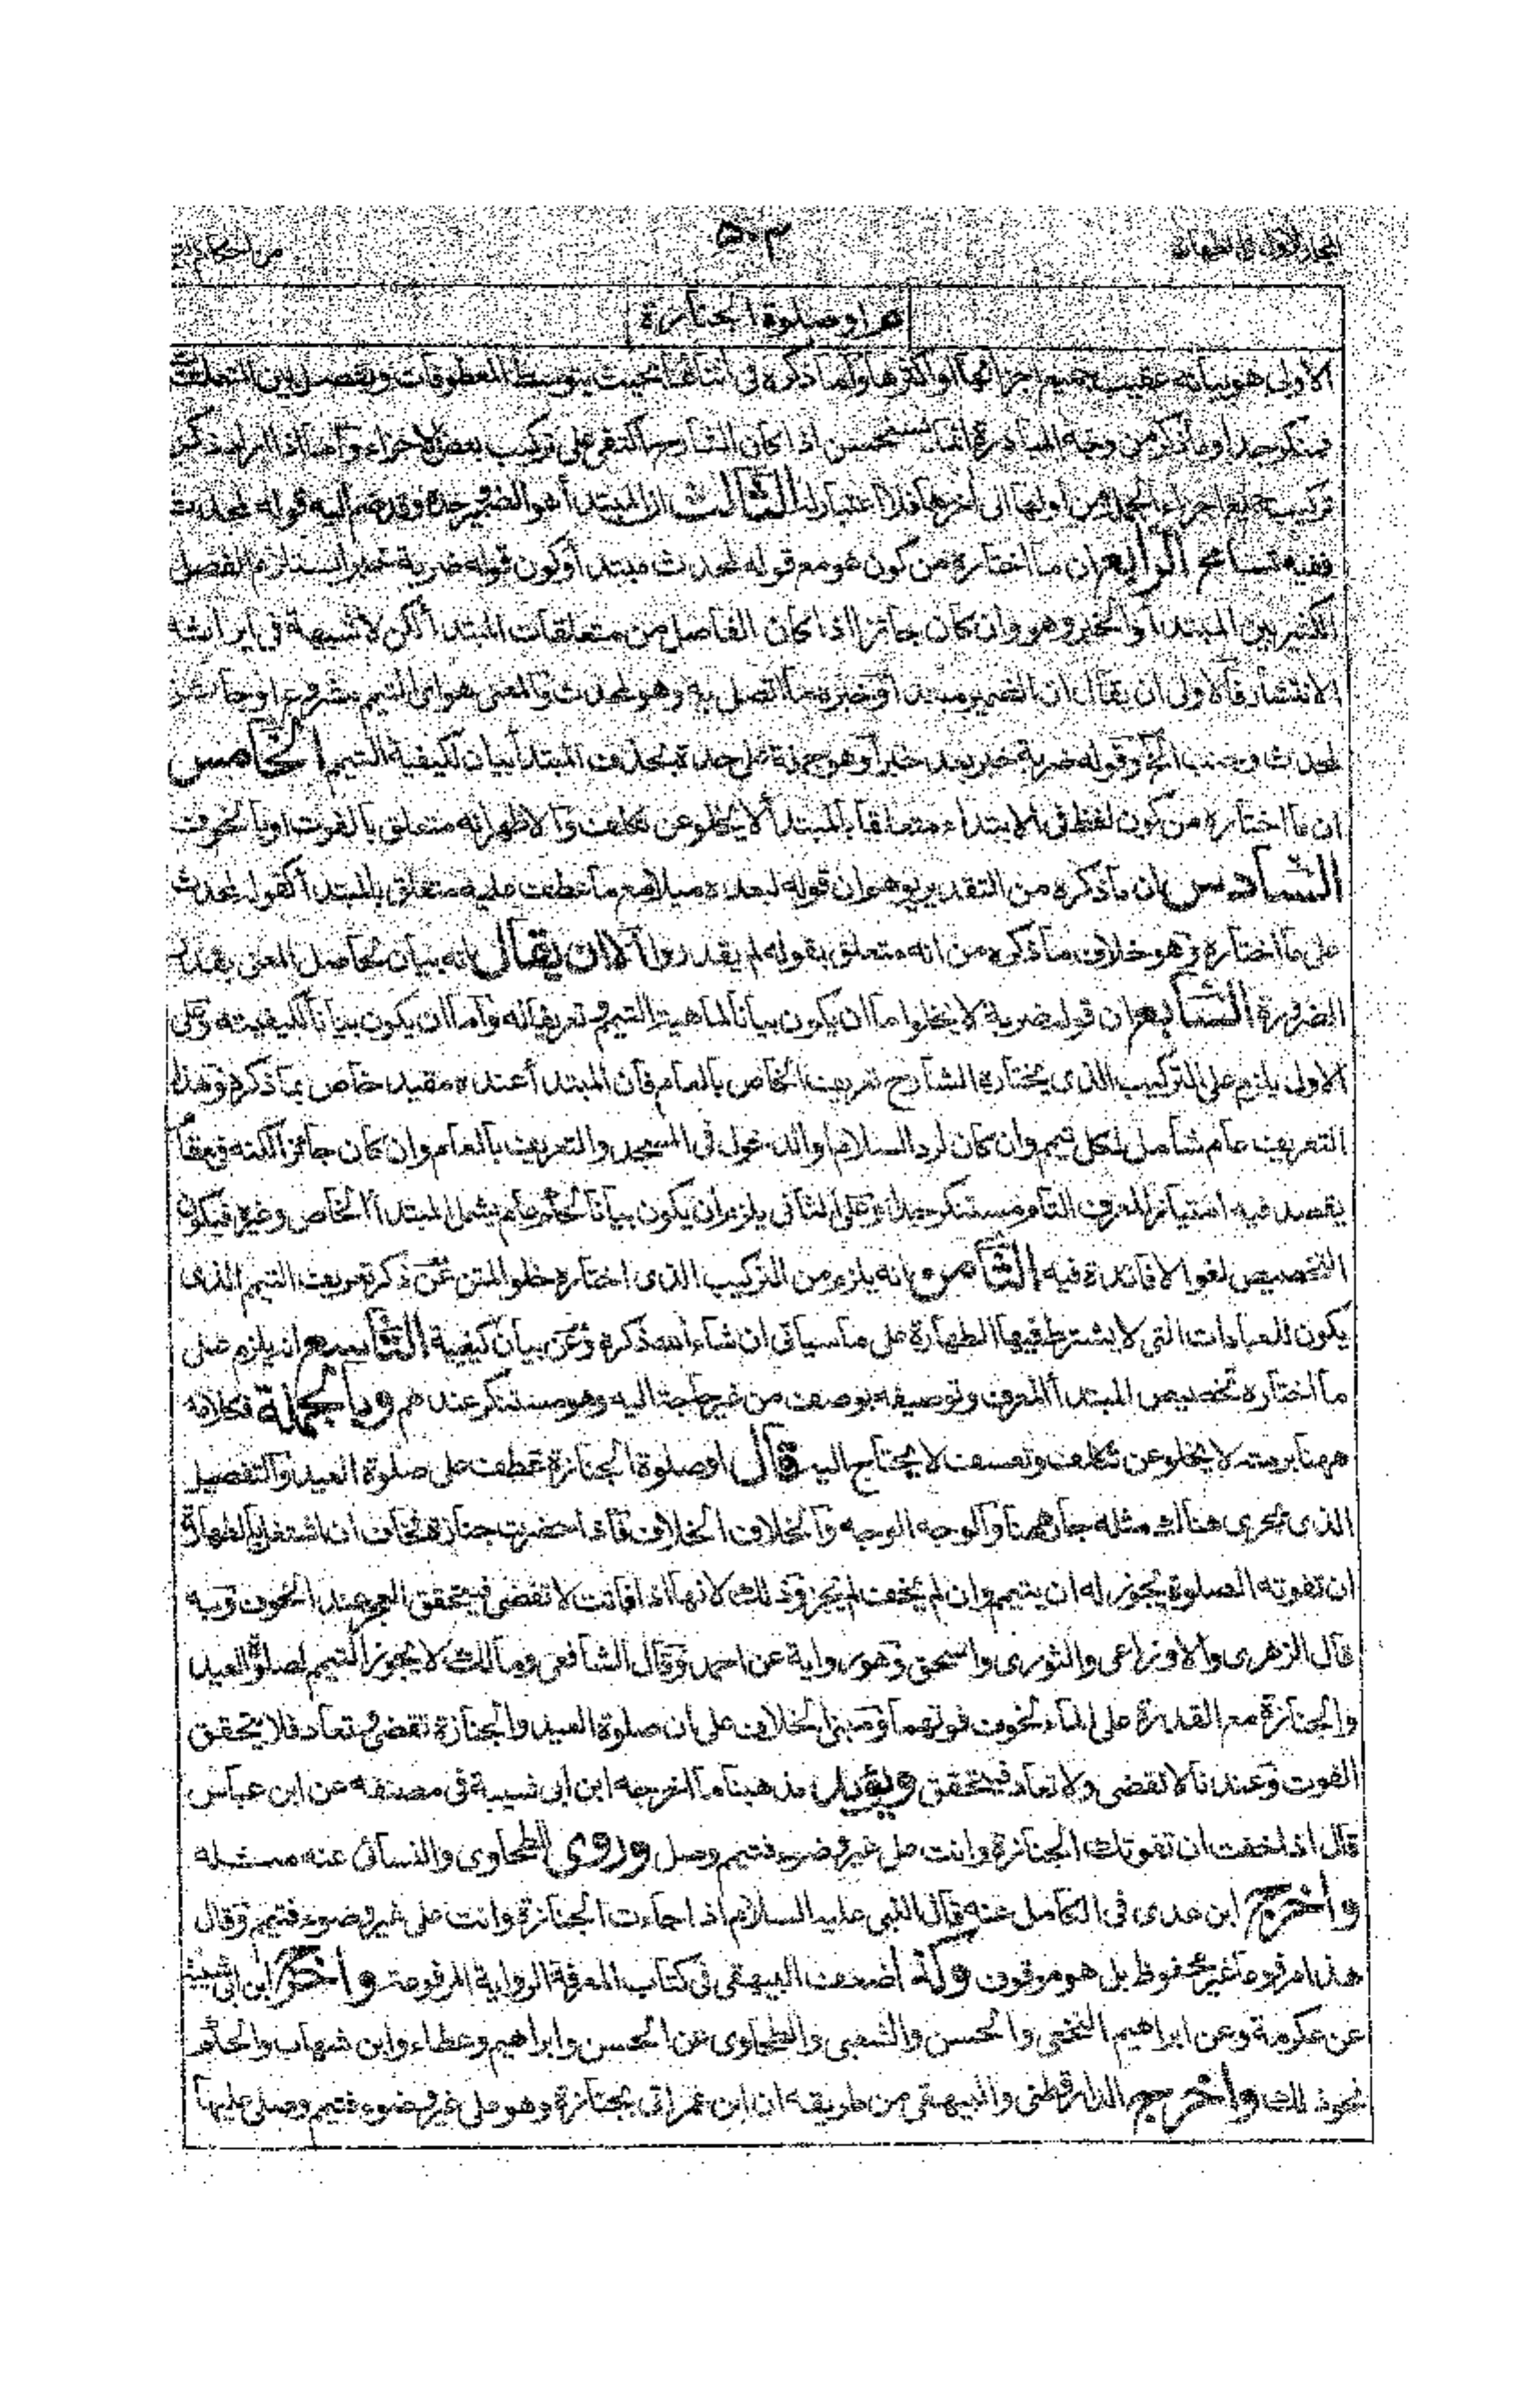 ٥٠٣
المجلد الاول في الطهارة
هر او صلوة الجنازة
الاولى هو بيانه عقيب جميع اجزائها او اكثرها واما ذكره في اثنائها بحيث يتوسط المعطوفات ويفصل بين
فمنكر جدا وما ذكره من وجه المبادرة انما يستحسن اذا كان الشارح اكتفى على تركيب بعض الاجزاء واما اذا اراد ذكر
تركيب جميع اجزاء الجملة من اولها الى آخرها فلا اعتبار له الثالث ان المبتدأ هو الضمير وحده وقد ضم اليه قوله لمحدث
ففيه تسامح الرابع ان ما اختاره من كون هو مع قوله لمحدث مبتدأ وكون قوله ضربة خبرا يستلزم الفصل
الكثير بين المبتدأ والخبر وهو وان كان جائزا اذا كان الفاصل من متعلقات المبتدأ لكن لا شبهة في ايراثه
الانتشار فالاولى ان يقال ان الضمير مبتدأ وخبره ما اتصل به وهو لمحدث والمعنى هو اى التيمم مشروع او جائز
لمحدث وجنب الخ وقوله ضربة خبر بعد خبر او هو جملة على حدة بحذف المبتدأ بيان لكيفية التيمم الخامس
ان ما اختاره من كون لفظ في الابتداء متعلقا بالمبتدأ لا يخلو عن تكلف والاظهر انه متعلق بالفوت او بالخوف
السادس ان ما ذكره من التقدير يوهم ان قوله لبعده ميلا مع ما عطف عليه متعلق بالمبتدأ كقوله لمحدث
على ما اختاره وهو خلاف ما ذكره من انه متعلق بقوله لم يقدروا الا ان يقال انه بيان لحاصل المعنى بقدر
الضرورة السابع ان قوله ضربة لا يخلو اما ان يكون بيانا لماهية التيمم وتعريفا له واما ان يكون بيانا لكيفيته وعلى
الاول يلزم على التركيب الذى يختاره الشارح تعريف الخاص بالعام فان المبتدأ عنده مقيد خاص بما ذكره وهذا
التعريف عام شامل لكل تيمم وان كان لرد السلام او الدخول في المسجد والتعريف بالعام وان كان جائزا لكنه في مقام
يقصد فيه امتياز المعرف التام مستنكر جدا وعلى الثاني يلزم ان يكون بيانا لحكم عام يشمل المبتدأ الخاص وغيره فيكون
التخصيص لغوا لا فائدة فيه الثامن انه يلزم من التركيب الذى اختاره خلو المتن عن ذكر تعريف التيمم الذى
يكون للعبادات التي لا يشترط فيها الطهارة على ما سياتي ان شاء الله ذكره وعن بيان كيفية التاسع انه يلزم على
ما اختاره تخصيص المبتدأ المعرف وتوصيفه بوصف من غير حاجة اليه وهو مستنكر عندهم وبالجملة فكلامه
ههنا برمته لا يخلو عن تكلف وتعسف لا يحتاج اليه قال او صلوة الجنازة عطف على صلوة العيد والتفصيل
الذى جرى هنالك مثله جار ههنا والوجه الوجه والخلاف الخلاف فاذا حضرت جنازة فخاف ان اشتغل بالطهارة
ان تفوته الصلوة يجوز له ان يتيمم وان لم يخف لم يجز وذلك لانها اذا فاتت لا تقضى فيتحقق العجز عند الخوف وبه
قال الزهرى والاوزاعى والثورى واسحق وهو رواية عن احمد وقال الشافعى ومالك لا يجوز التيمم لصلوة العيد
والجنازة مع القدرة على الماء لخوف فوتهما ومبنى الخلاف على ان صلوة العيد والجنازة تقضى وتعاد فلا يتحقق
الفوت وعندنا لا تقضى ولا تعاد فيتحقق ويؤيد مذهبنا ما اخرجه ابن ابى شيبة في مصنفه عن ابن عباس
قال اذا خفت ان تفوتك الجنازة وانت على غير وضوء فتيمم وصل وروى الطحاوى والنسائى عنه مثله
واخرج ابن عدى في الكامل عنه قال النبي عليه السلام اذا جاءت الجنازة وانت على غير وضوء فتيمم وقال
هذا مرفوعا غير محفوظ بل هو موقوف وكذا ضعف البيهقى في كتاب المعرفة الرواية المرفوعة واخرج ابن ابى شيبة
عن عكرمة وعن ابراهيم النخعى والحسن والشعبى والطحاوى عن الحسن وابراهيم وعطاء وابن شهاب والحكم
نحو ذلك واخرج الدارقطنى والبيهقى من طريقه ان ابن عمر اتى بجنازة وهو على غير وضوء فتيمم وصلى عليها